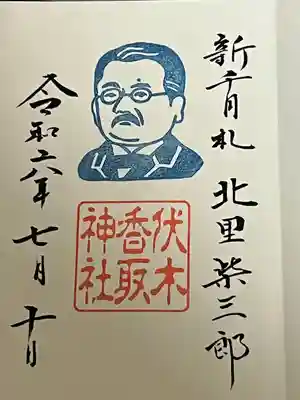 新千円札 北里柴三郎
伏木
香取
神社
令和六年 七月 十日